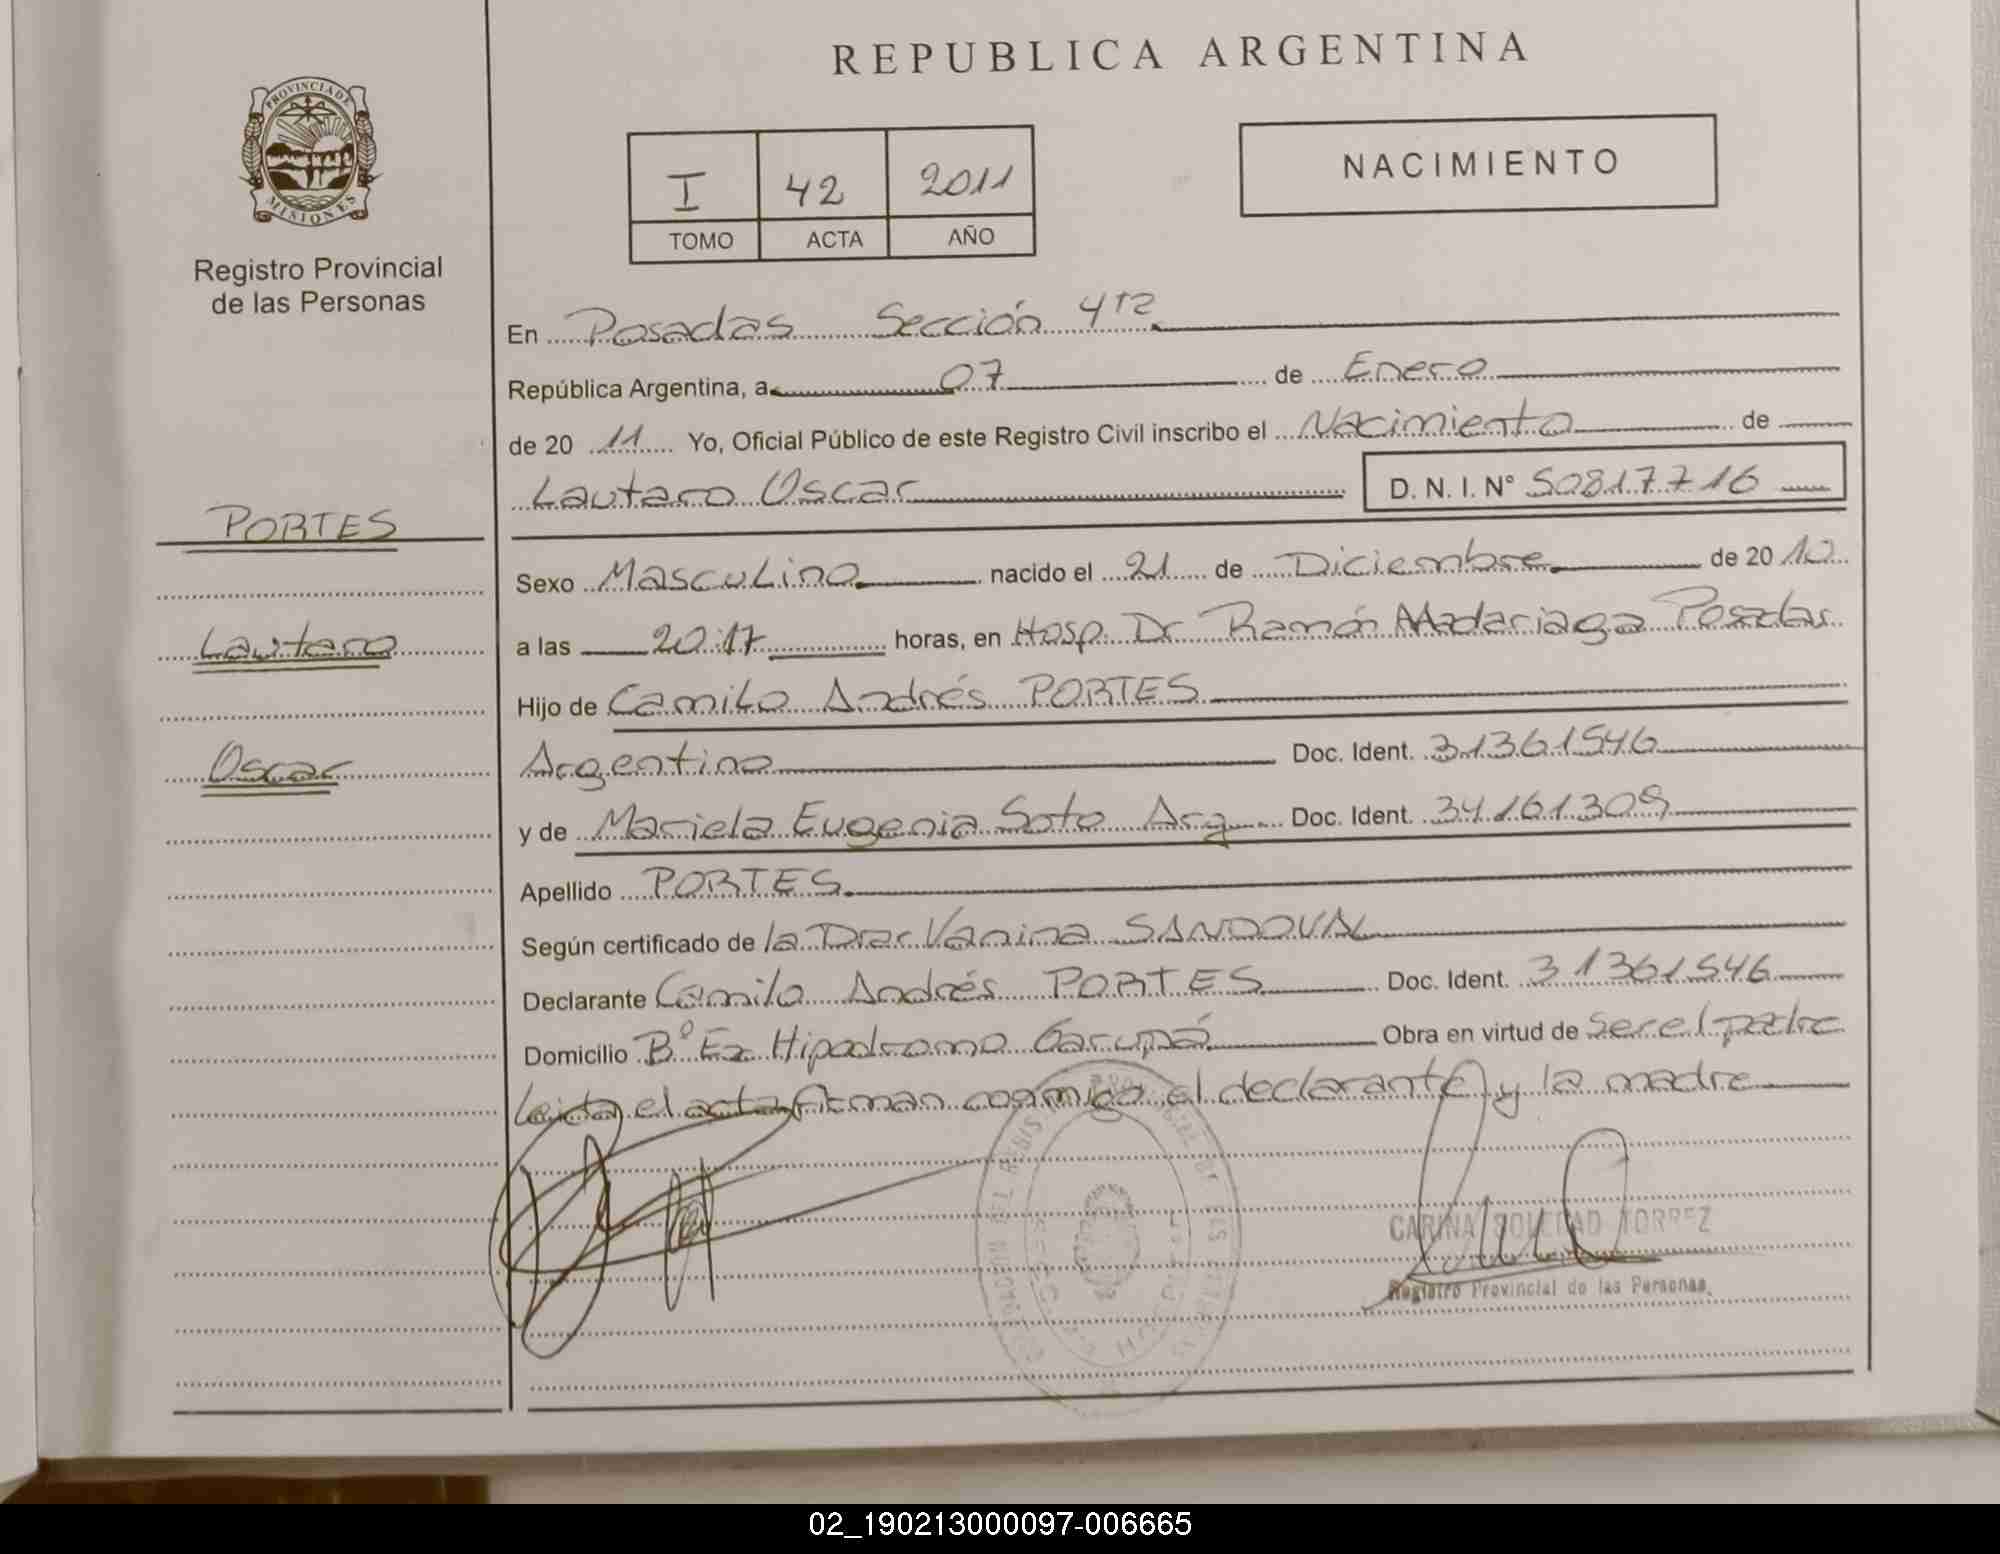 REPUBLICA ARGENTINA
PROVINCIA DE
MISIONES
Registro Provincial
de las Personas
I 42 2011
TOMO ACTA AÑO
NACIMIENTO
En Posadas Sección 4ta
República Argentina, a 07 de Enero
de 20 11 Yo, Oficial Público de este Registro Civil inscribo el Nacimiento de
Lautaro Oscar D. N. I. N° 50817716
PORTES
Lautaro
Oscar
Sexo Masculino nacido el 21 de Diciembre de 20 10
a las 20:17 horas, en Hosp. Dr. Ramón Madariaga Posadas
Hijo de Camilo Andrés PORTES
Argentino Doc. Ident. 31361546
y de Mariela Eugenia Soto Arg Doc. Ident. 34161309
Apellido PORTES
Según certificado de la Dra. Vanina SANDOVAL
Declarante Camilo Andrés PORTES Doc. Ident. 31361546
Domicilio B° Ex Hipodromo Garupá Obra en virtud de ser el padre
Leida el acta firman conmigo el declarante y la madre
CARINA SOLEDAD TORREZ
Registro Provincial de las Personas
02_190213000097-006665